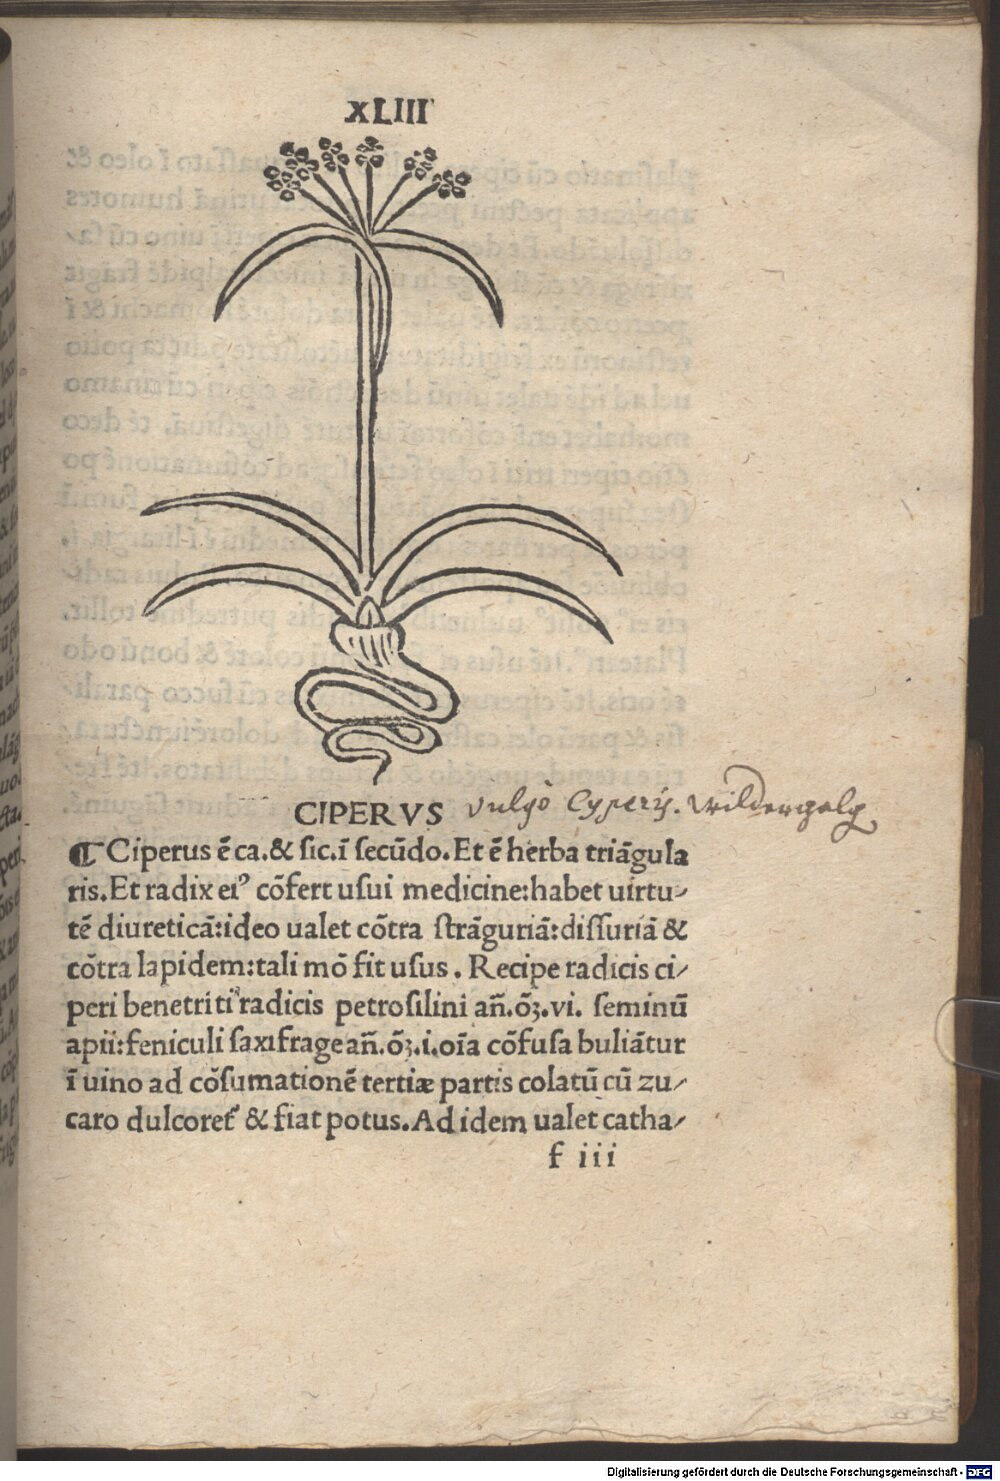 XLIII
CIPERVS vulgo Cyperꝰ. wilder galg
¶ Ciperus ē ca.& sic.ī secūdo.Et ē herba triāgula
ris.Et radix eiꝰ cōfert usui medicine:habet uirtu-
tē diureticā:ideo ualet cōtra strāguriā:dissuriā &
cōtra lapidem:tali mō fit usus. Recipe radicis ci-
peri benetriti radicis petrosilini añ.ō℥.vi. seminū
apii:feniculi saxifrage añ.ō℥.i.oīa cōfusa buliātur
ī uino ad cōsumationē tertiæ partis colatū cū zu-
caro dulcoret᷑ & fiat potus.Ad idem ualet catha-
f iii
Digitalisierung gefördert durch die Deutsche Forschungsgemeinschaft - DFG